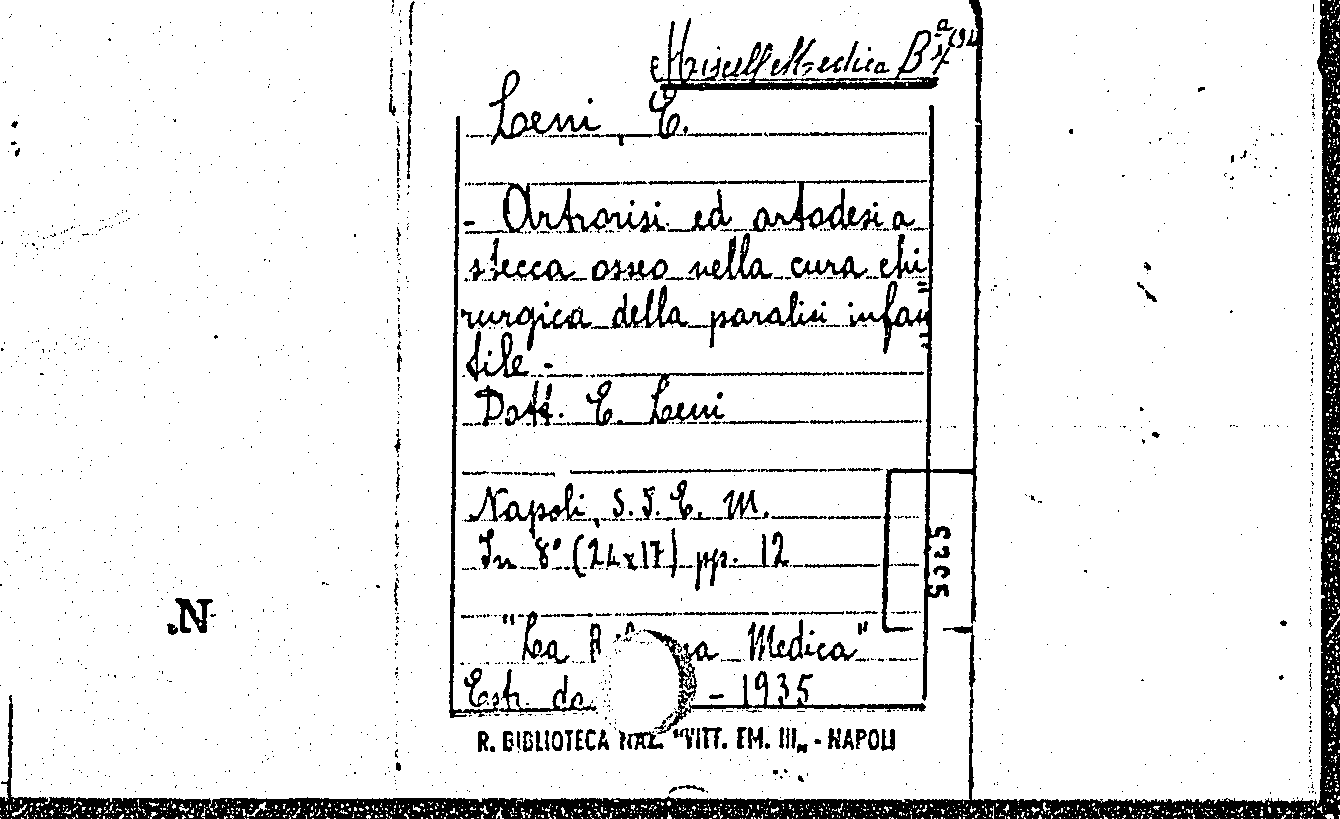 Miscell. Medica B.
Leni, E.
- Artrorisi ed artodesi a
stecca osseo nella cura chi
rurgica della paralisi infan"
tile -
Dott. E. Leni
Napoli, S. I. E. M.
In 8° (24x17) pp. 12
5335
"La Medica"
Estr. da - 1935
R. BIBLIOTECA NAZ. "VITT. EM. III„ - NAPOLI
N.